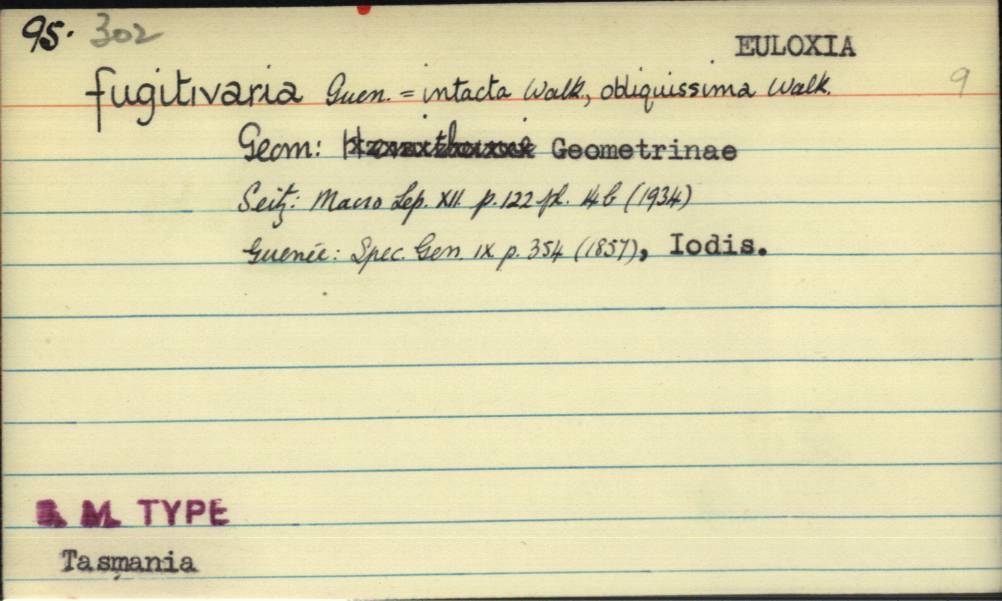 95. 302
EULOXIA
fugitivaria Guen. = intacta Walk, obliquissima Walk. 9
Geom: Geometrinae
Seitz: Macro Lep. XII. p.122 pl. 14b (1934)
Guenée: Spec. Gen. IX p. 354 (1857), Iodis.
B. M. TYPE
Tasmania